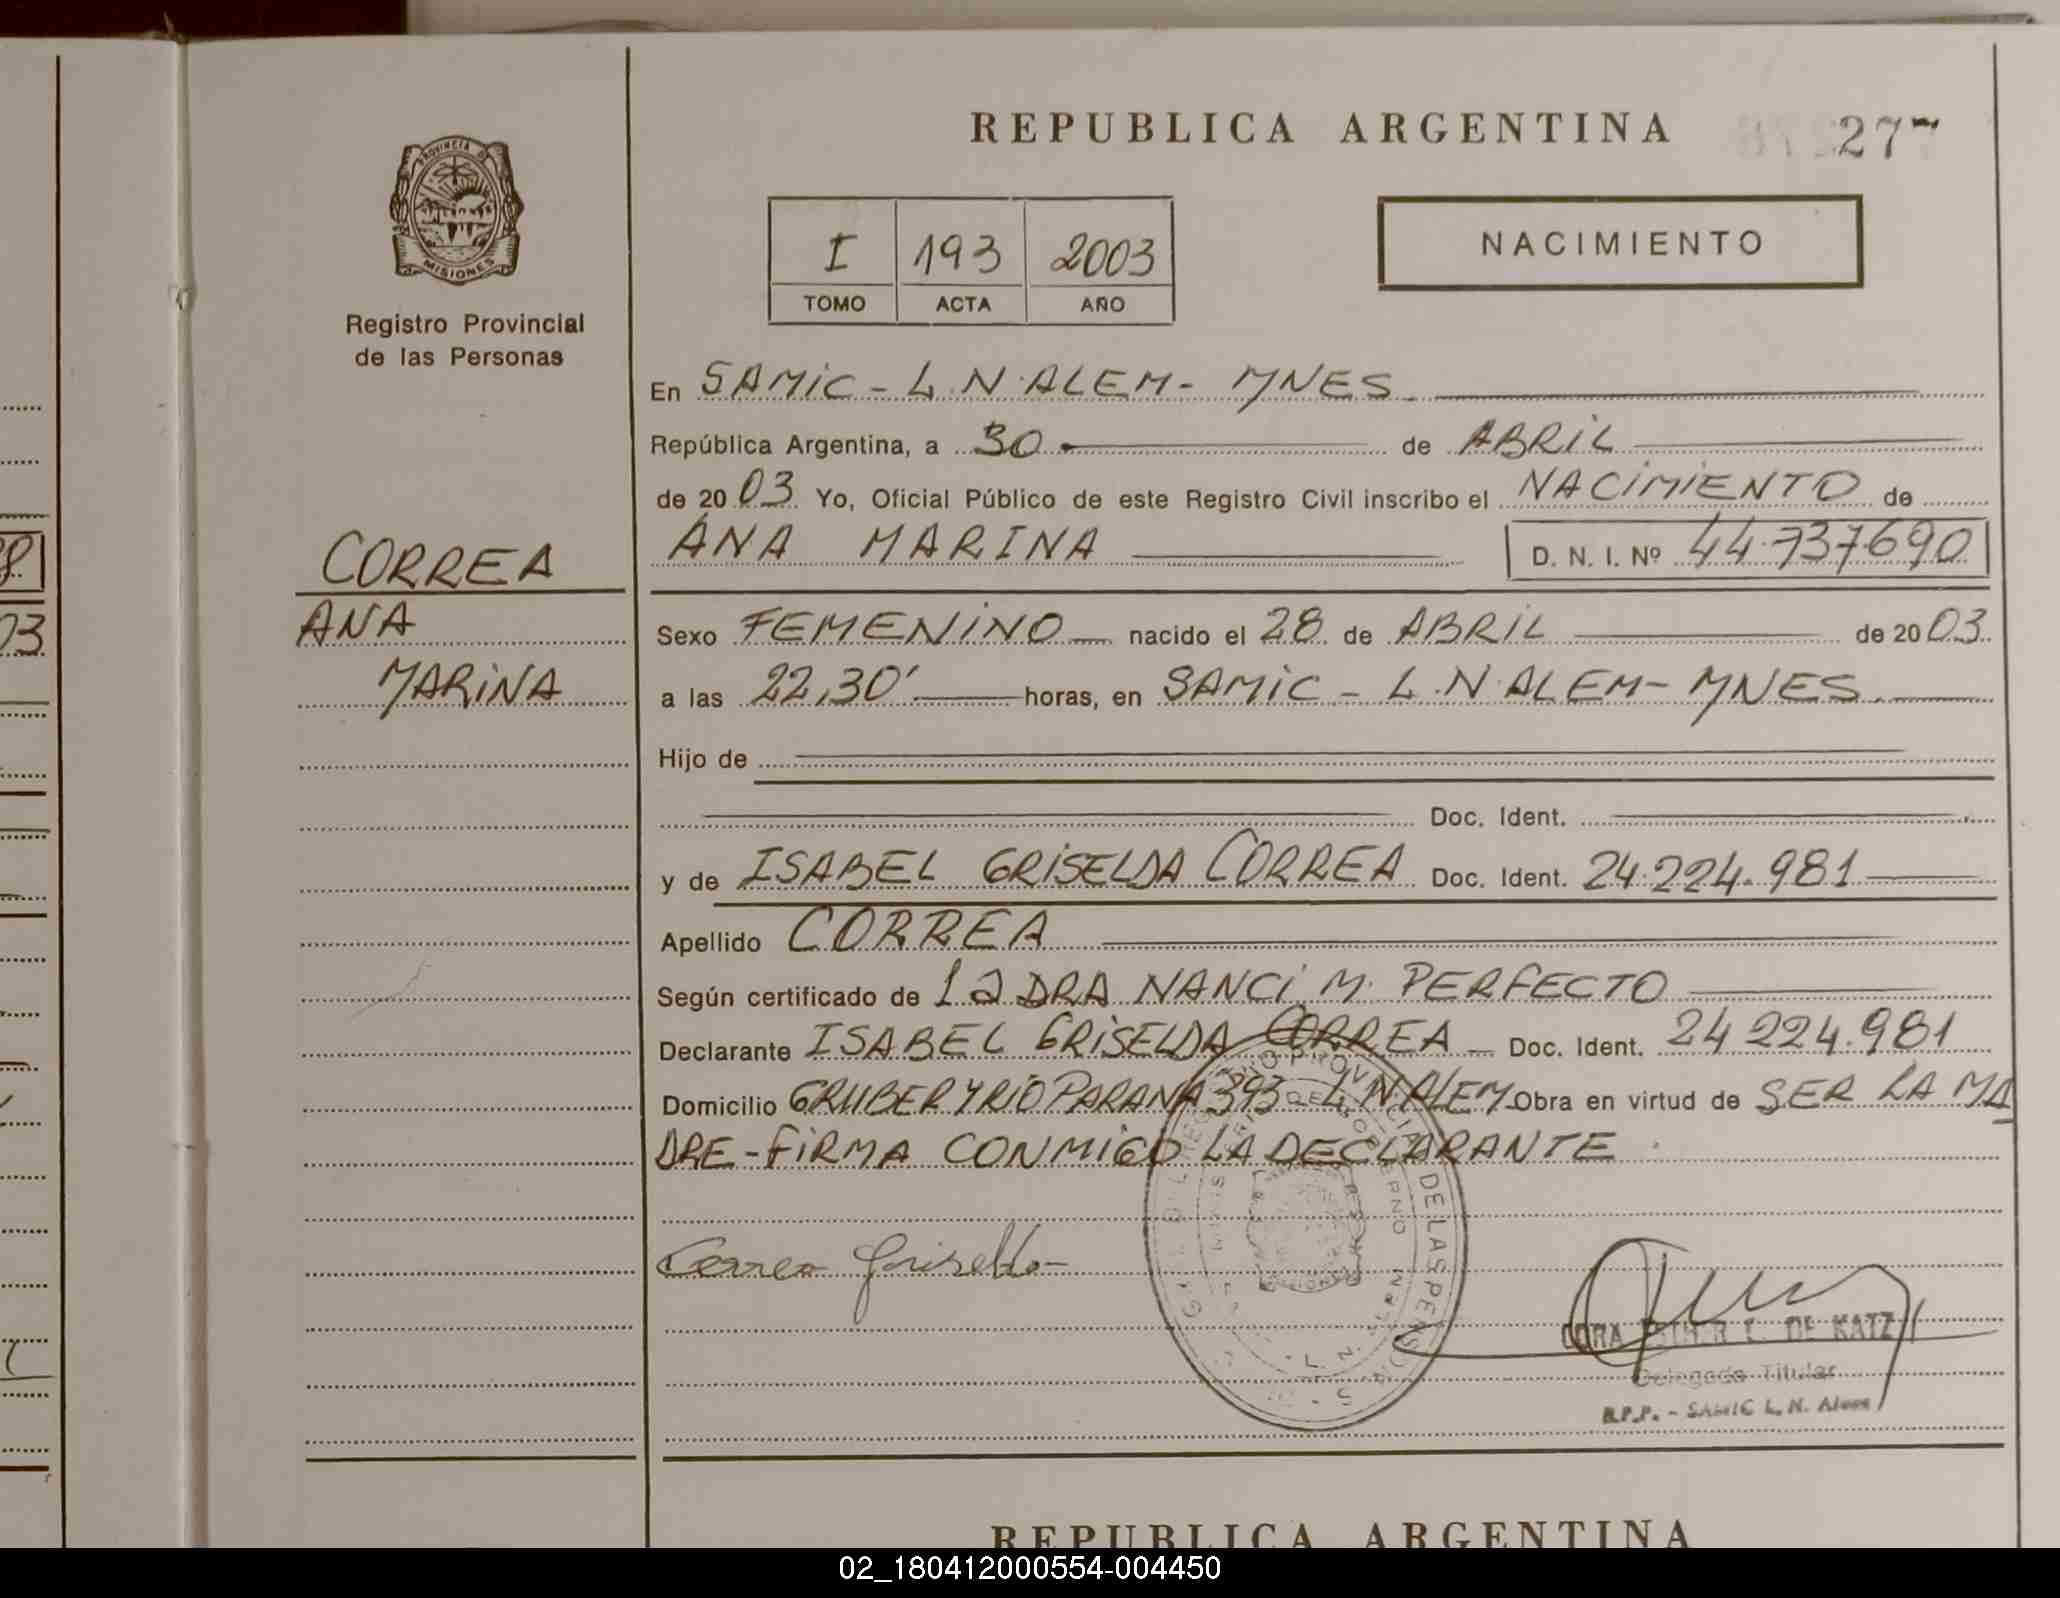 REPUBLICA ARGENTINA
277
PROVINCIA DE
MISIONES
Registro Provincial
de las Personas
I 193 2003
TOMO ACTA AÑO
NACIMIENTO
En SAMIC - L.N.ALEM - MNES.
República Argentina, a 30 de ABRIL
de 2003 Yo, Oficial Público de este Registro Civil inscribo el NACIMIENTO de
ANA MARINA D. N. I. Nº 44.737.690
CORREA
ANA
MARINA
Sexo FEMENINO nacido el 28 de ABRIL de 2003
a las 22,30' horas, en SAMIC - L.N.ALEM - MNES.
Hijo de
Doc. Ident.
y de ISABEL GRISELDA CORREA Doc. Ident. 24.224.981
Apellido CORREA
Según certificado de la DRA NANCI M. PERFECTO
Declarante ISABEL GRISELDA CORREA Doc. Ident. 24.224.981
Domicilio GRUBER Y RIO PARANA 393 L.N.ALEM Obra en virtud de SER LA MA
DRE - FIRMA CONMIGO LA DECLARANTE.
Correa Griselda
DE LAS PERSONAS
L. N. ALEM
DE KATZ
Delegada Titular
R.P.P. - SAMIC L. N. Alem
REPUBLICA ARGENTINA
03
02_180412000554-004450